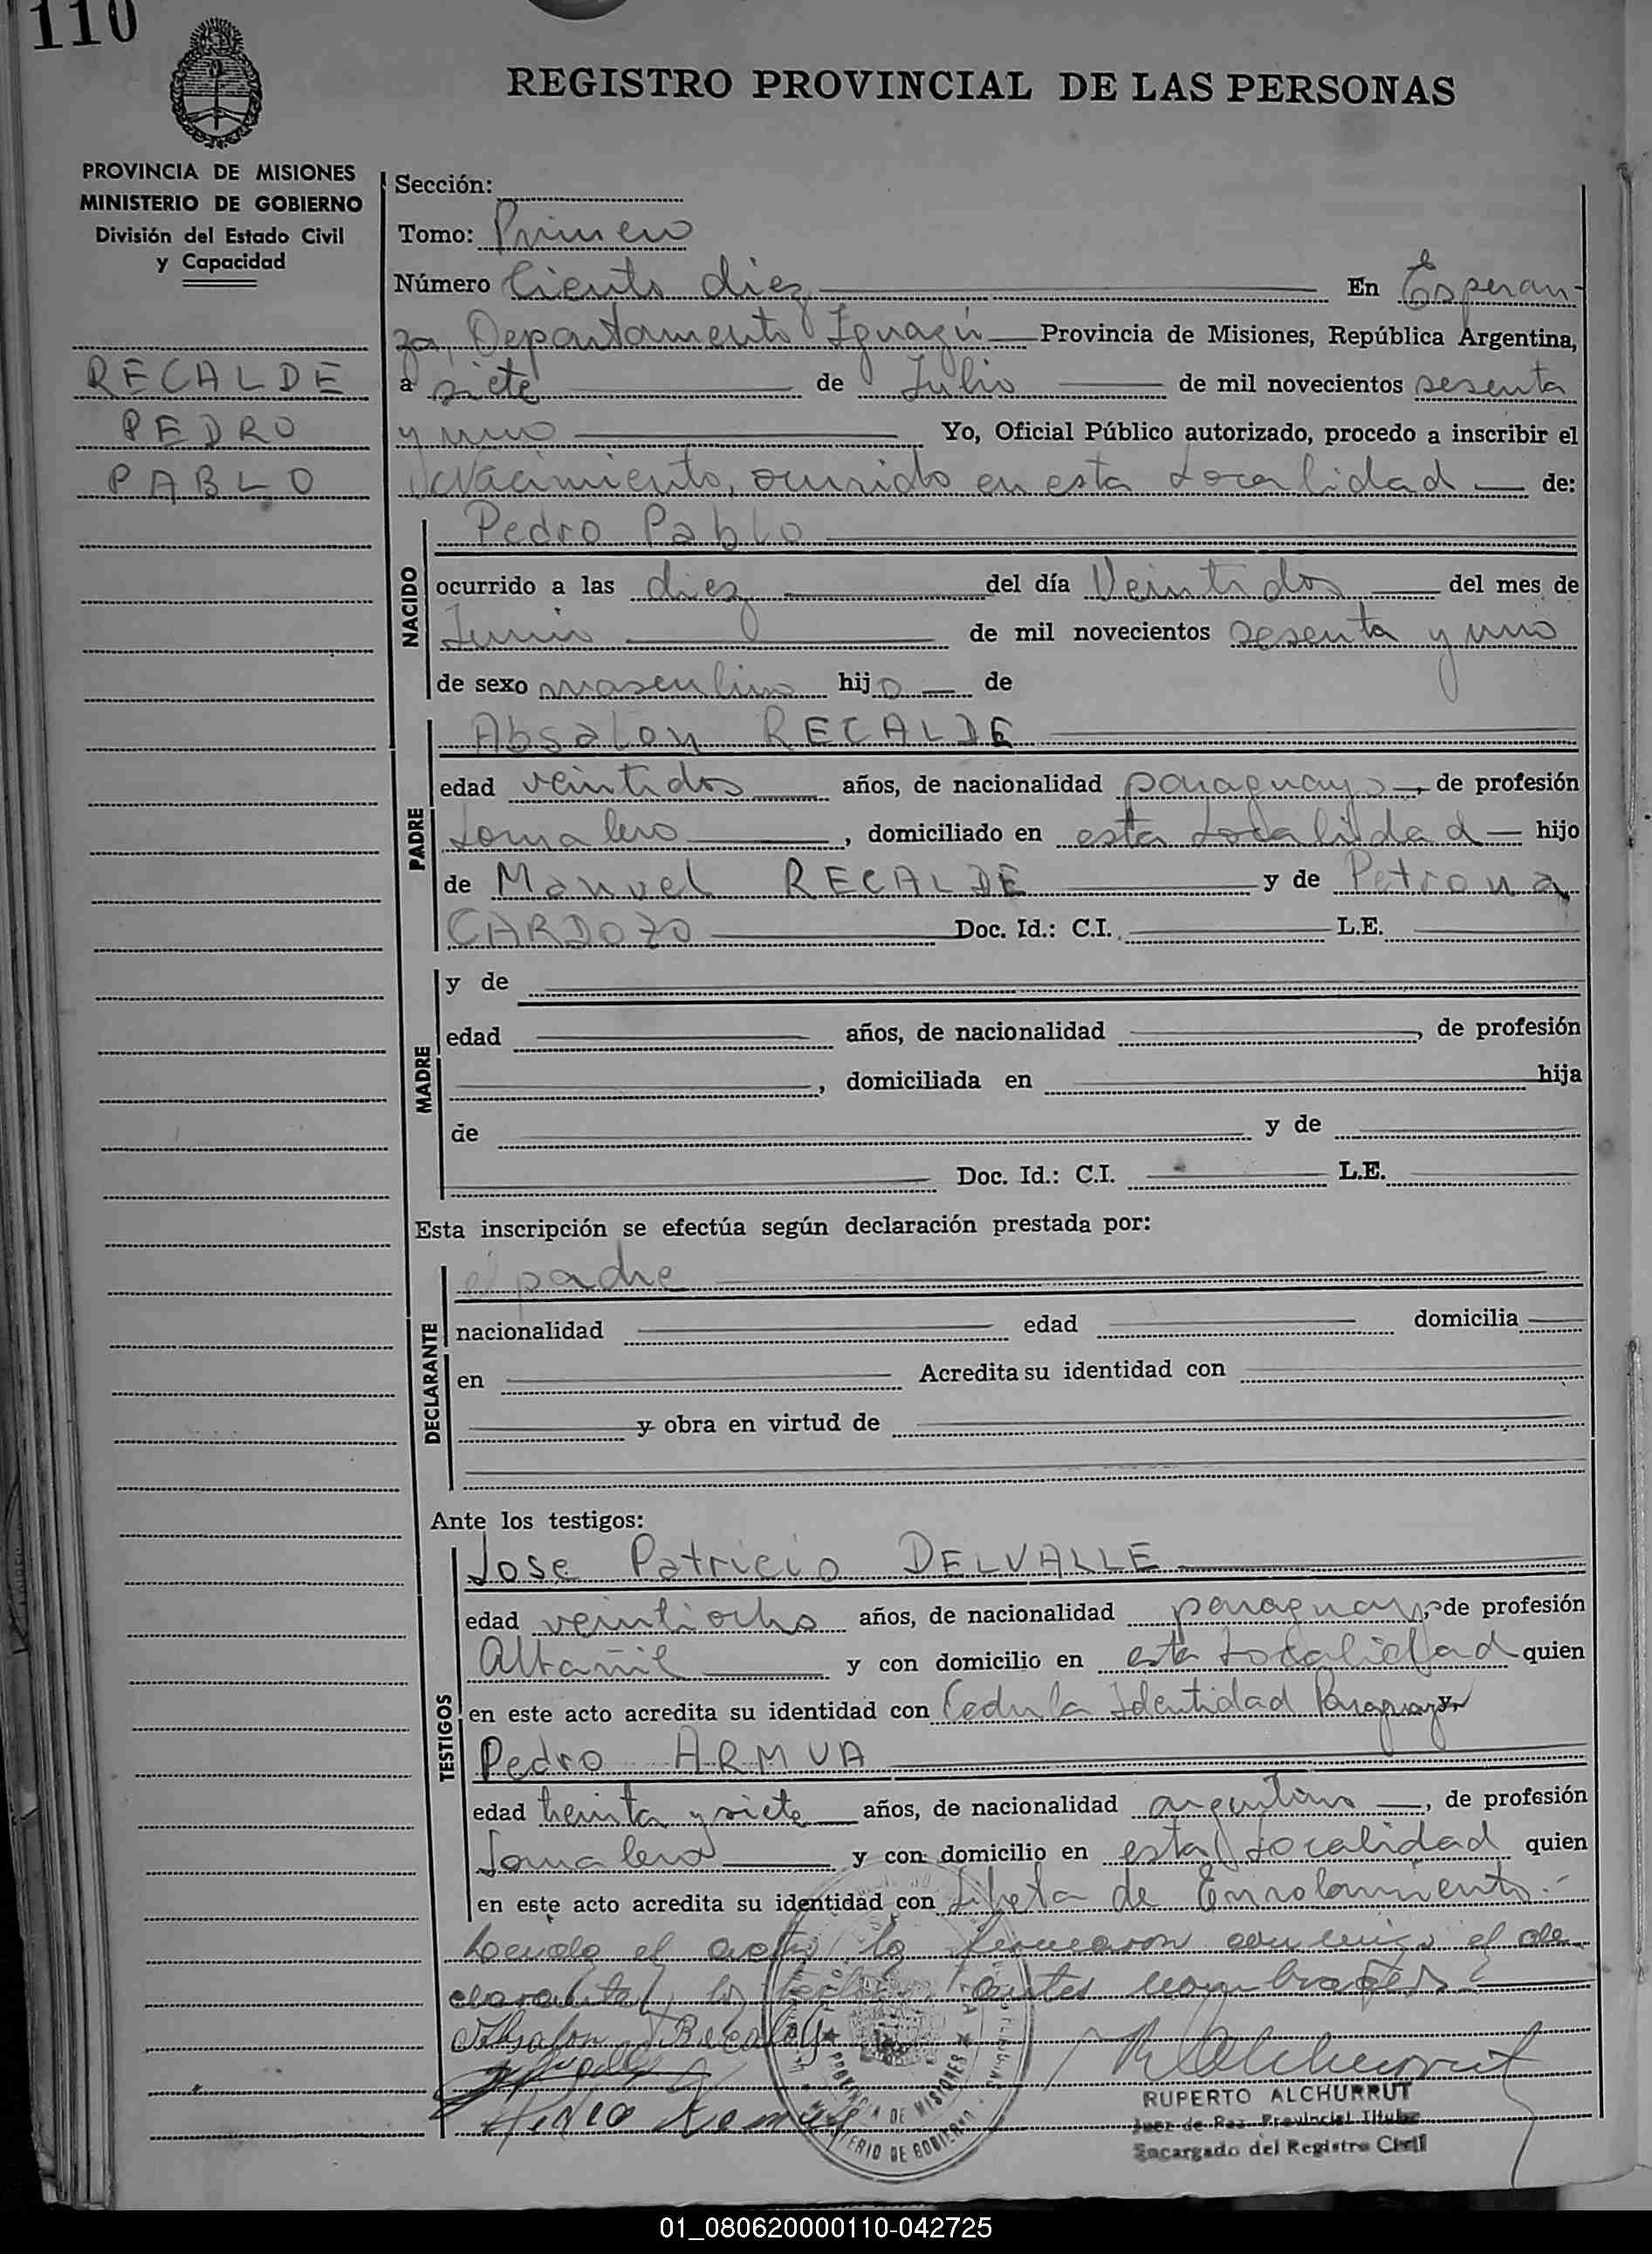 110
REGISTRO PROVINCIAL DE LAS PERSONAS
PROVINCIA DE MISIONES
MINISTERIO DE GOBIERNO
División del Estado Civil
y Capacidad
RECALDE
PEDRO
PABLO
Sección:
Tomo: Primero
Número Ciento diez En Esperan-
za, Departamento Iguazú Provincia de Misiones, República Argentina,
a siete de Julio de mil novecientos sesenta
y uno Yo, Oficial Público autorizado, procedo a inscribir el
Nacimiento, ocurrido en esta Localidad de:
NACIDO
Pedro Pablo
ocurrido a las diez del día Veintidos del mes de
Junio de mil novecientos sesenta y uno
de sexo masculino hijo de
PADRE
Absalon RECALDE
edad veintidos años, de nacionalidad paraguayo, de profesión
Jornalero, domiciliado en esta Localidad hijo
de Manuel RECALDE y de Petrona
CARDOZO Doc. Id.: C.I. L.E.
MADRE
y de
edad años, de nacionalidad , de profesión
, domiciliada en hija
de y de
Doc. Id.: C.I. L.E.
Esta inscripción se efectúa según declaración prestada por:
DECLARANTE
el padre
nacionalidad edad domicilia
en Acredita su identidad con
y obra en virtud de
Ante los testigos:
TESTIGOS
Jose Patricio DELVALLE
edad veintiocho años, de nacionalidad paraguayo, de profesión
Albañil y con domicilio en esta Localidad quien
en este acto acredita su identidad con Cedula Identidad Paraguaya
Pedro ARMUA
edad treinta y siete años, de nacionalidad argentino, de profesión
Jornalero y con domicilio en esta Localidad quien
en este acto acredita su identidad con Libreta de Enrolamiento.-
Leida el acta, la firmaron conmigo el de-
clarante y los testigos antes nombrados.
Absalon Recalde
PROVINCIA DE MISIONES
MINISTERIO DE GOBIERNO
RUPERTO ALCHURRUT
Juez de Paz Provincial Titular
Encargado del Registro Civil
01_080620000110-042725